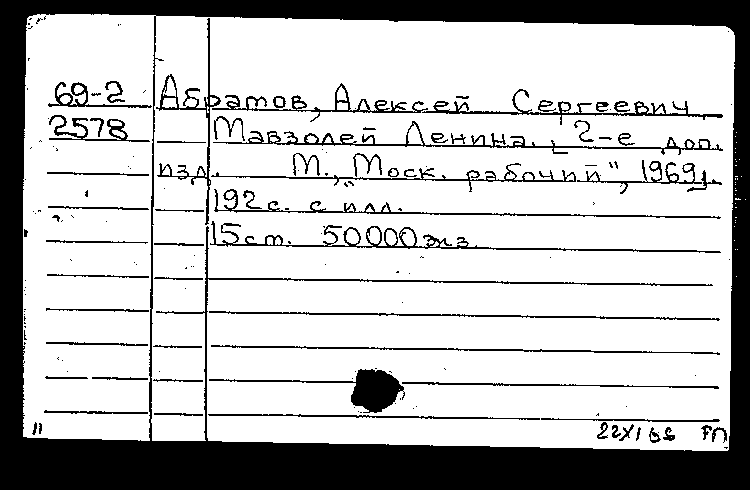 69-2 Абрамов, Алексей Сергеевич.
2578 Мавзолей Ленина. 2-е доп.
изд. М., "Моск. рабочий", 1969г.
192с. с илл.
15ст. 50000экз.
11